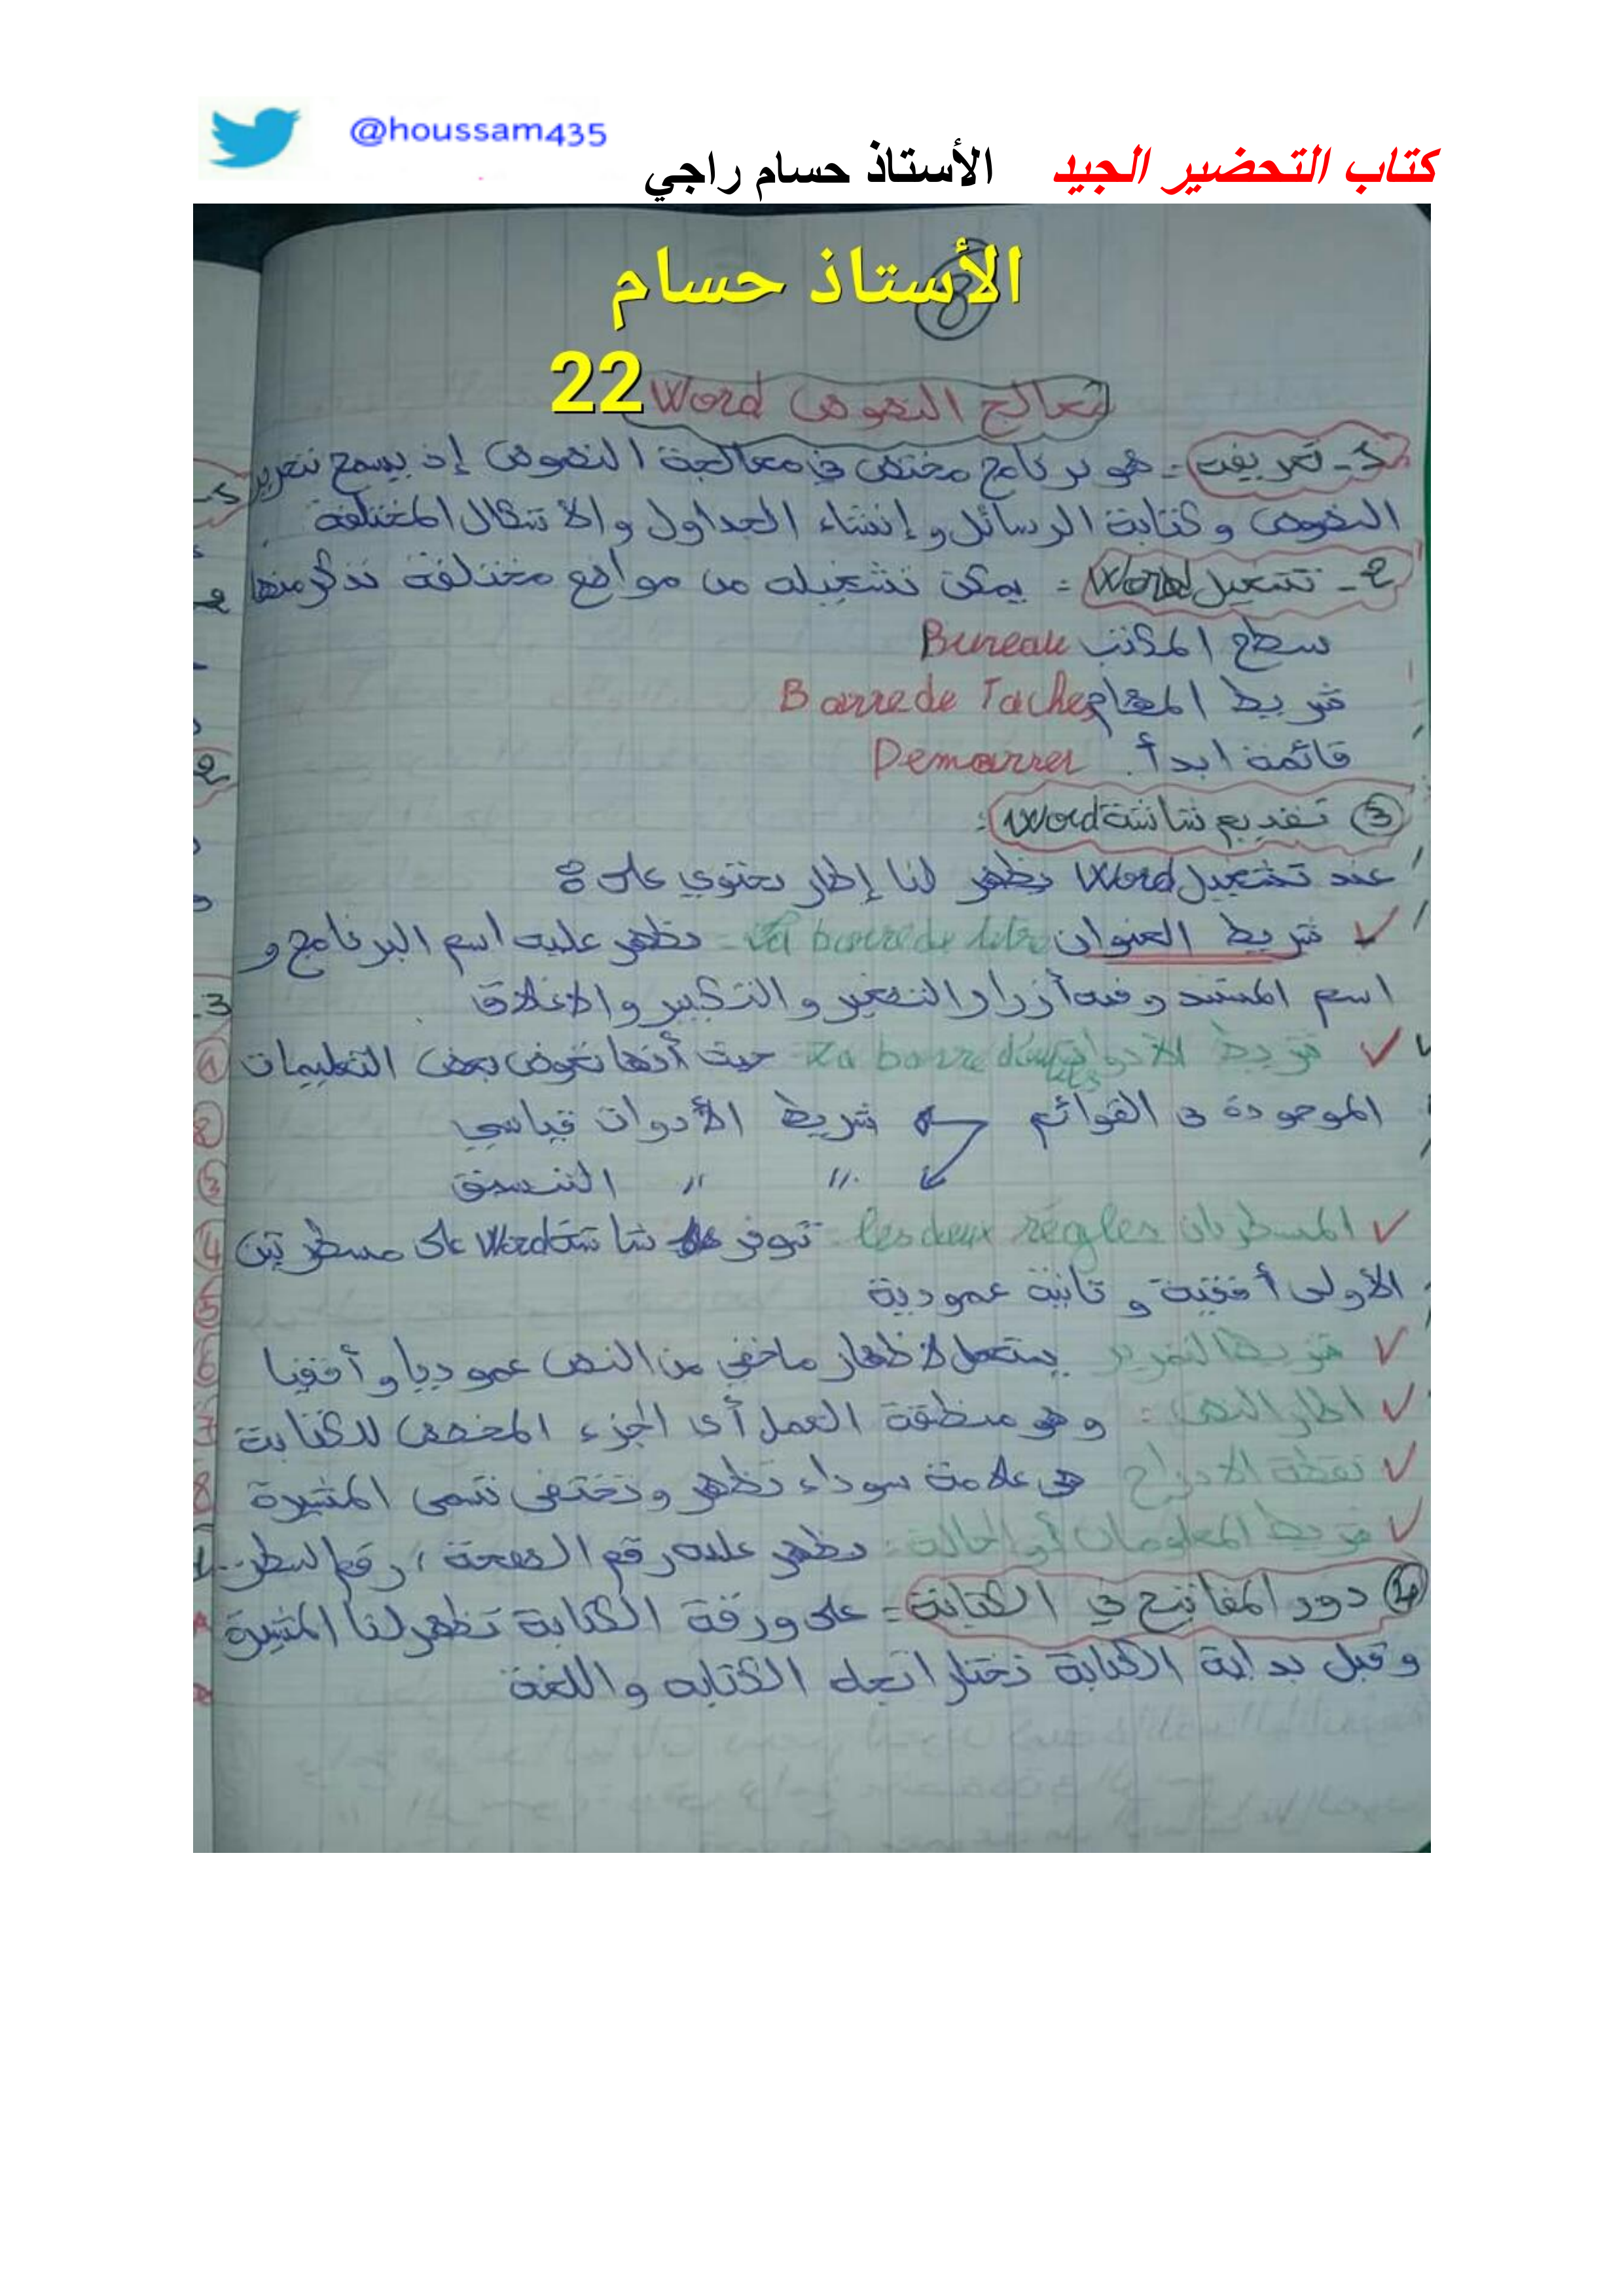 @houssam435
كتاب التحضير الجيد الأستاذ حسام راجي
الأستاذ حسام
22
معالج النصوص Word
1- تعريف: هو برنامج مختص في معالجة النصوص إذ يسمح بتحرير
النصوص و كتابة الرسائل و إنشاء الجداول والأشكال المختلفة
2- تشغيل Word: يمكن تشغيله من مواقع مختلفة نذكر منها
سطح المكتب Bureau
شريط المهام Barre de Taches
قائمة ابدأ. Demarrer
3 تقديم شاشة Word:
عند تشغيل Word يظهر لنا إطار يحتوي على:
✓ شريط العنوان La barre de titre: يظهر عليه اسم البرنامج و
اسم المستند و فيه أزرار التصغير والتكبير والاغلاق
✓ شريط الأدوات La barre d'outils: حيث أنها تعوض بعض التعليمات
الموجودة في القوائم شريط الأدوات قياسي
// // التنسيق
✓ المسطرتان les deux régles: تتوفر شاشة Word على مسطرتين
الأولى أفقية و ثانية عمودية
✓ شريط التمرير يستعمل لاظهار ما خفي من النص عموديا و أفقيا
✓ اطار النص: و هو منطقة العمل أي الجزء المخصص للكتابة
✓ نقطة الادراج هي علامة سوداء تظهر وتختفي تسمى المشيرة
✓ شريط المعلومات أو الحالة: يظهر عليه رقم الصفحة، رقم السطر..
4 دور المفاتيح في الكتابة: على ورقة الكتابة تظهر لنا المشيرة
وقبل بداية الكتابة نختار اتجاه الكتابه واللغة